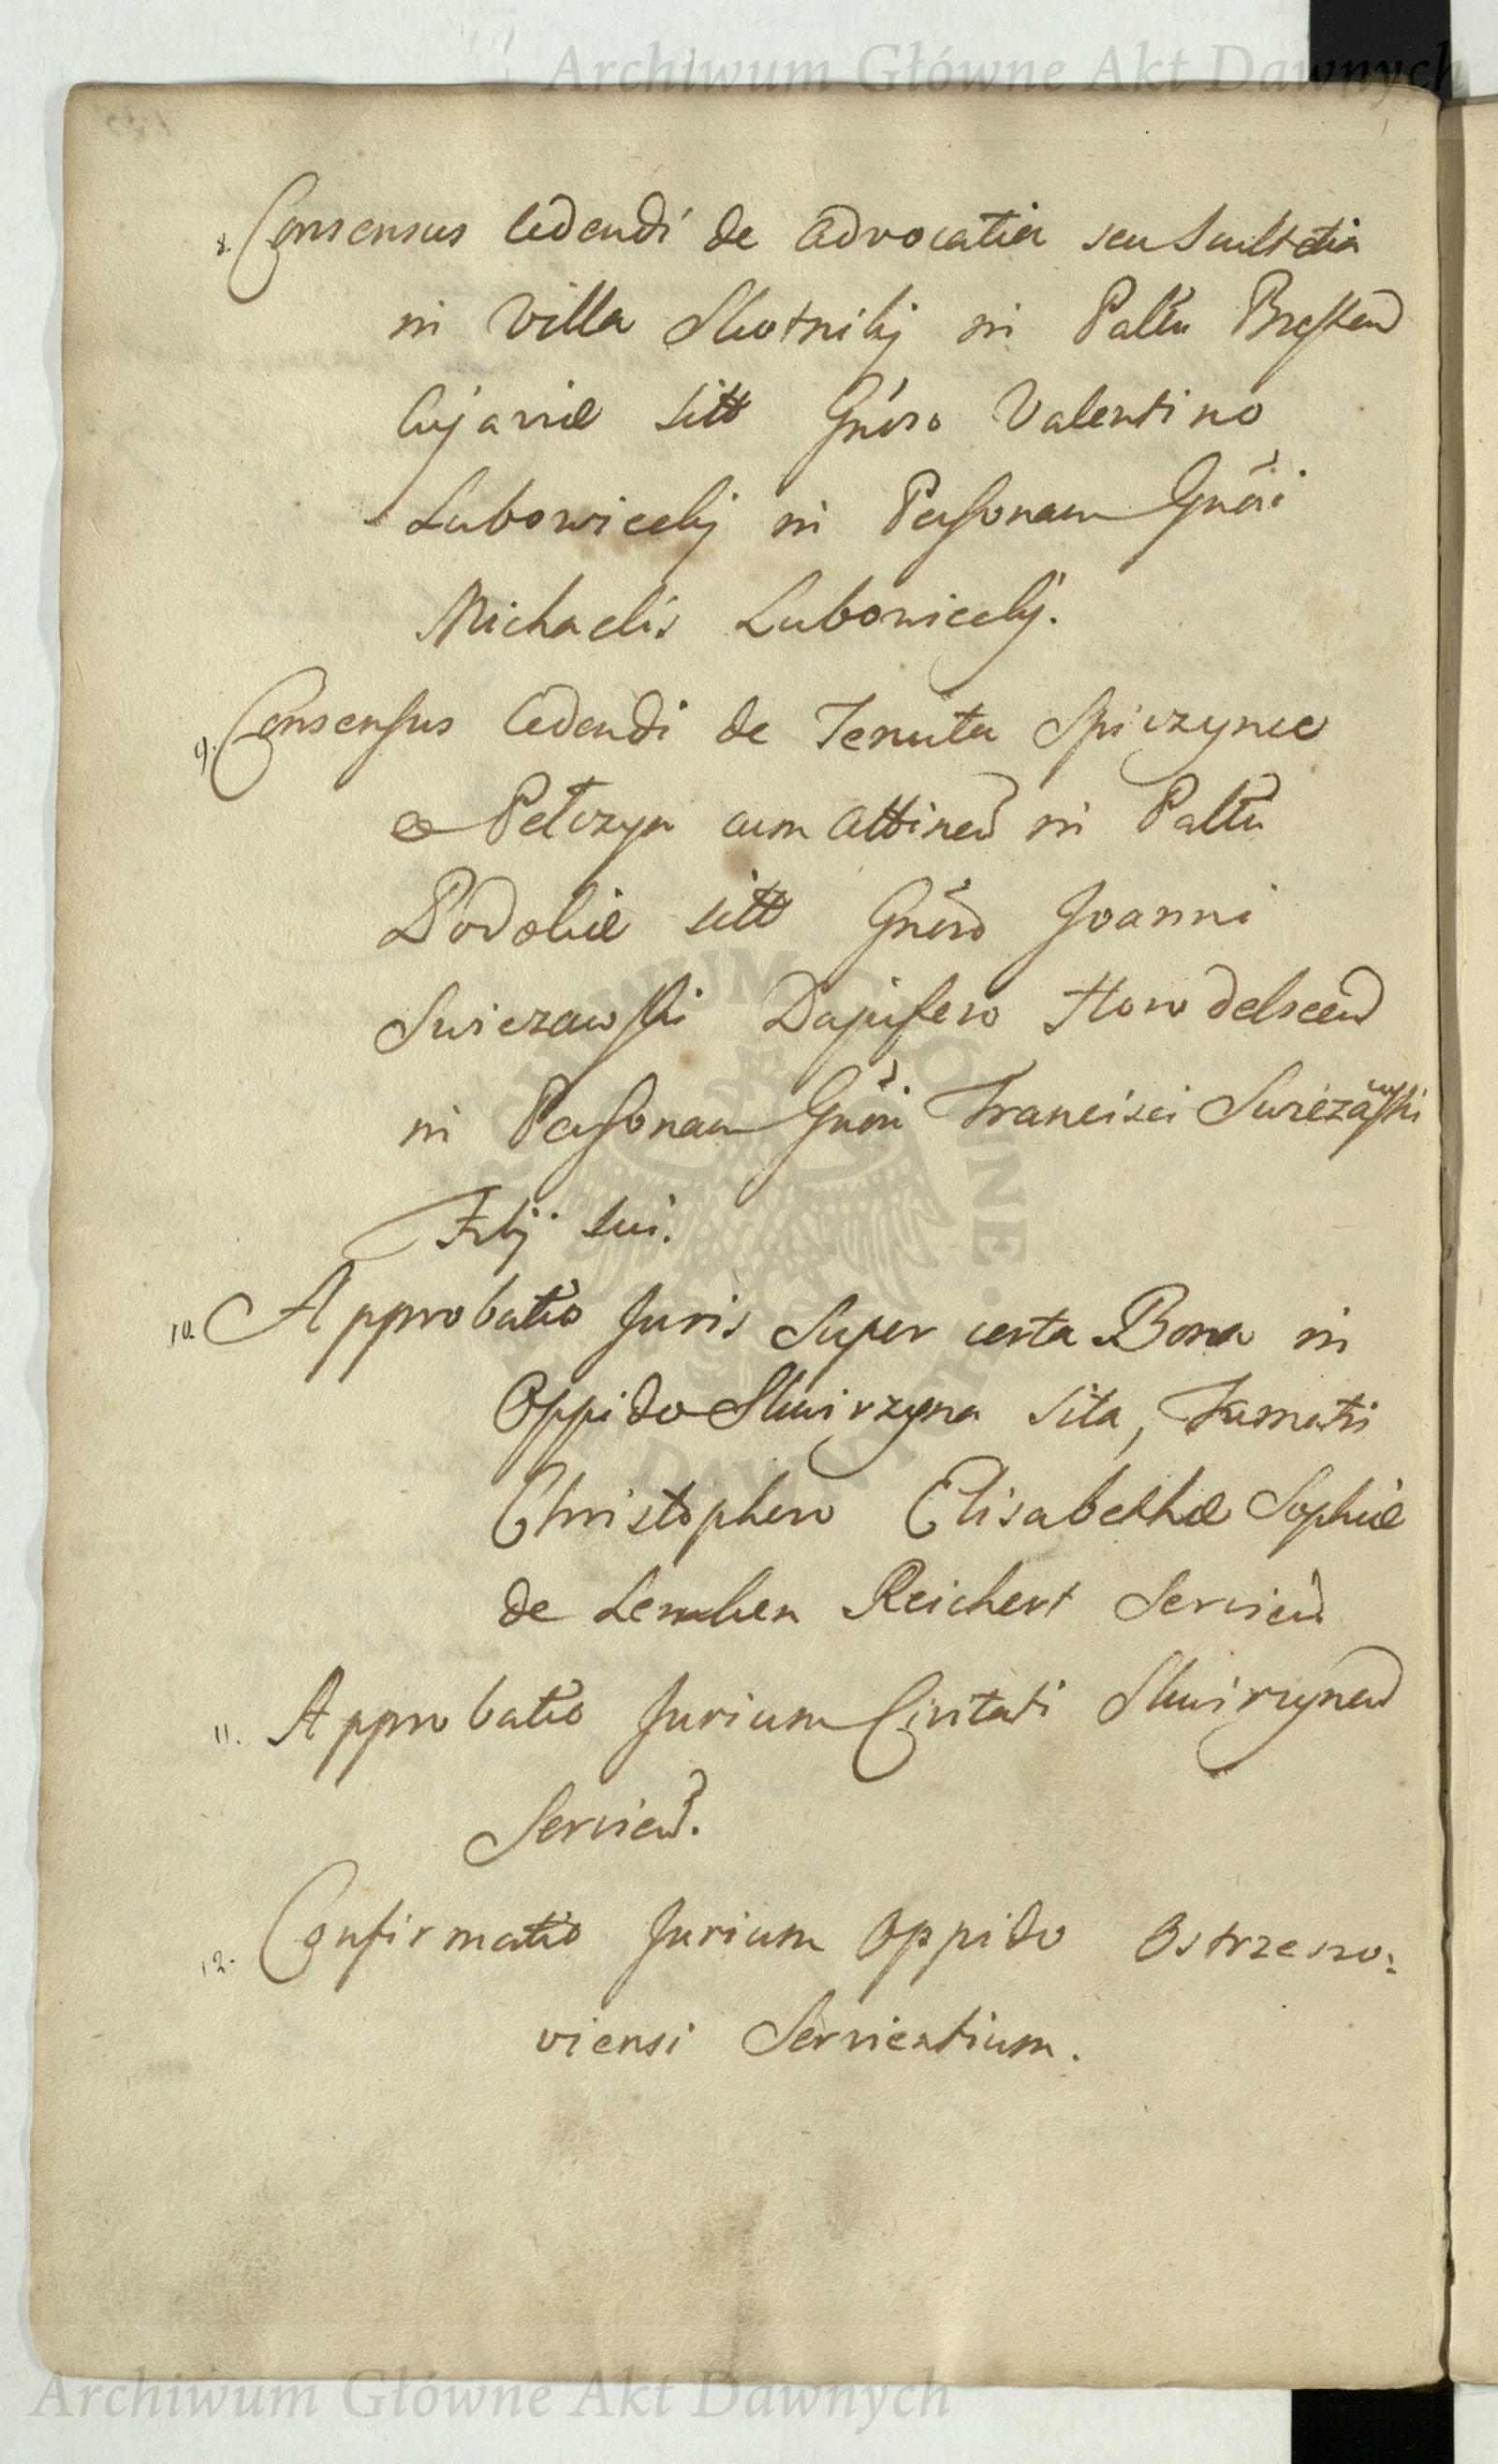 Archiwum Główne Akt Dawnych
8. Consensus Cedendi de Advocatia seu Scultetia
in Villa Skotniki in Pallu Brestens
Cujaviæ sitt Gnôso Valentino
Lubowiecky in Personam Gnôsi
Michaelis Lubowiecky.
9. Consensus Cedendi de Tenuta Spiczynce
et Pełczyn cum Attinen in Pallu
Podoliæ sitt Gnôso Joanni
Swiezawski Dapifero Horodelscen
in Personam Gnôsi Francisci Swieżawski
Filij sui.
10. Approbatio Juris super certa Bona in
Oppido Skwirzyna sita, Famato
Christophero Elisabethæ Sophiæ
de Reichert Servien
11. Approbatio Jurium Civitati Skwirzynen
Servien.
12. Confirmatio Jurium Oppido Ostrzeszo:
viensi Servientium.
Archiwum Główne Akt Dawnych